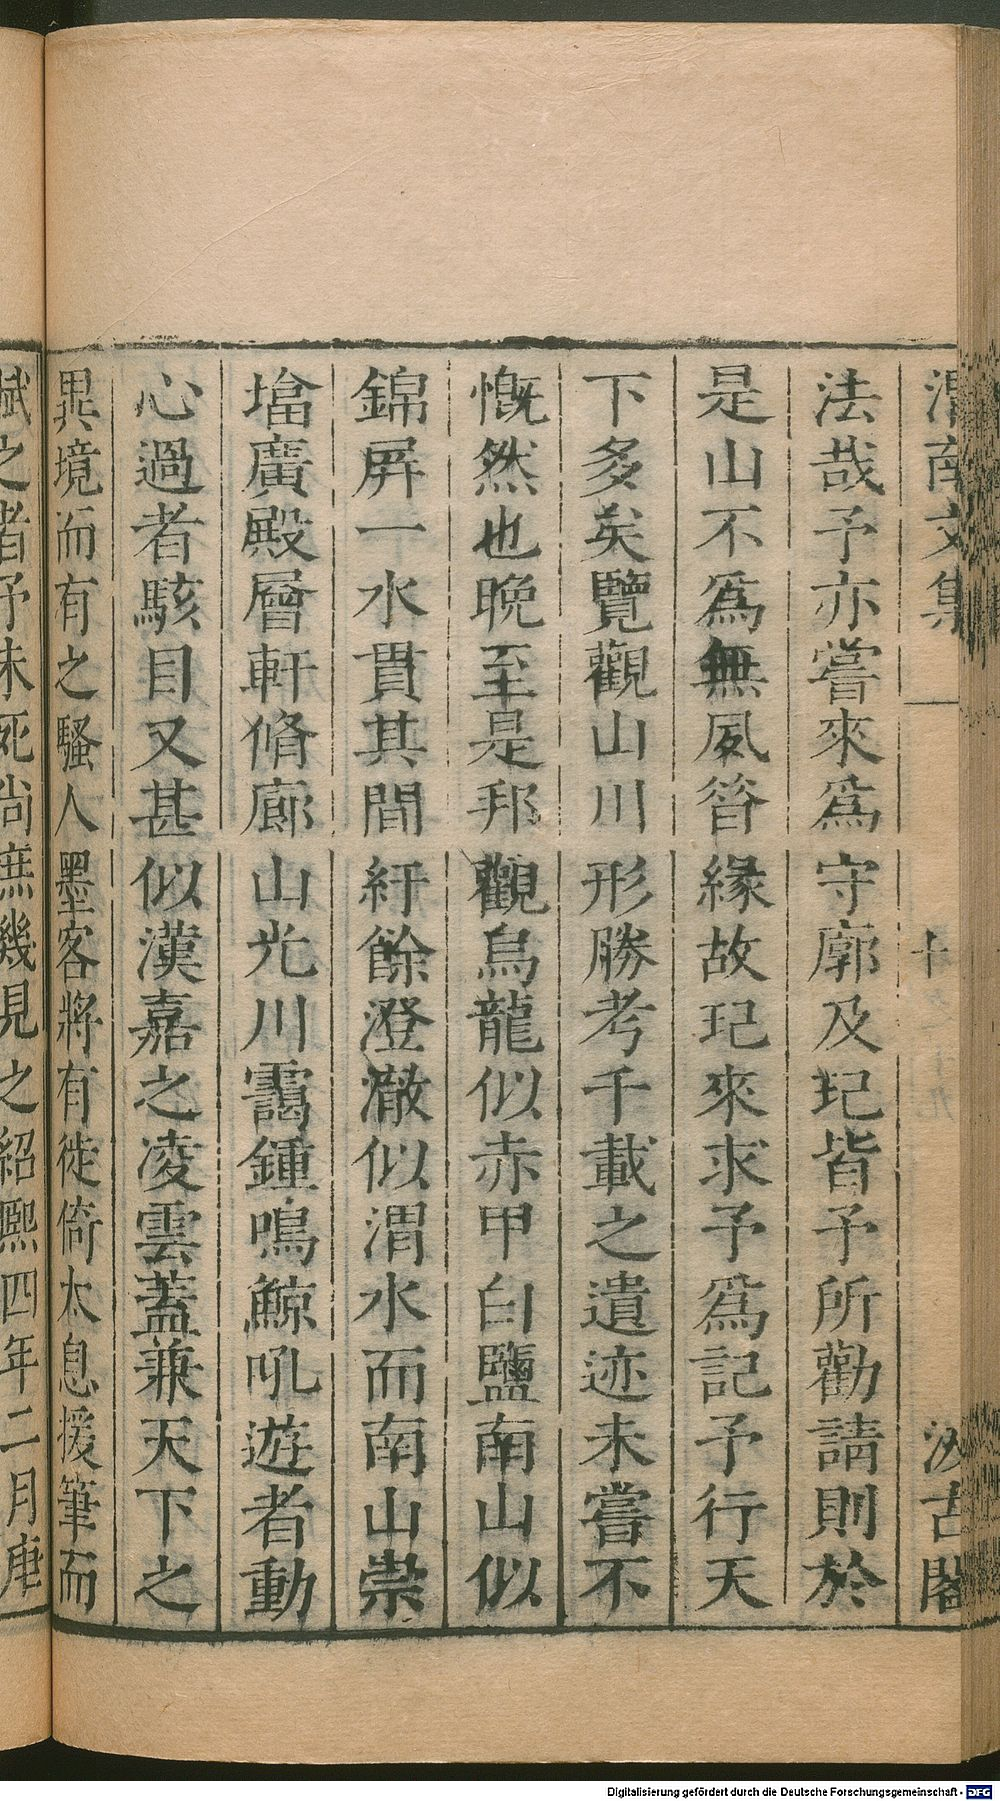 渭南文集
十
汲古閣
法哉予亦嘗來爲守廓及玘皆予所勸請則於
是山不爲無夙眷緣故玘來求予爲記予行天
下多矣覽觀山川形勝考千載之遺迹未嘗不
慨然也晚至是邦觀烏龍似赤甲白鹽南山似
錦屏一水貫其間紆餘澄澈似渭水而南山崇
墖廣殿層軒脩廊山光川靄鍾鳴鯨吼遊者動
心過者駭目又甚似漢嘉之凌雲蓋兼天下之
異境而有之騷人墨客將有徙倚太息援筆而
賦之者予未死尚庶幾見之紹熙四年二月庚
Digitalisierung gefördert durch die Deutsche Forschungsgemeinschaft - DFG